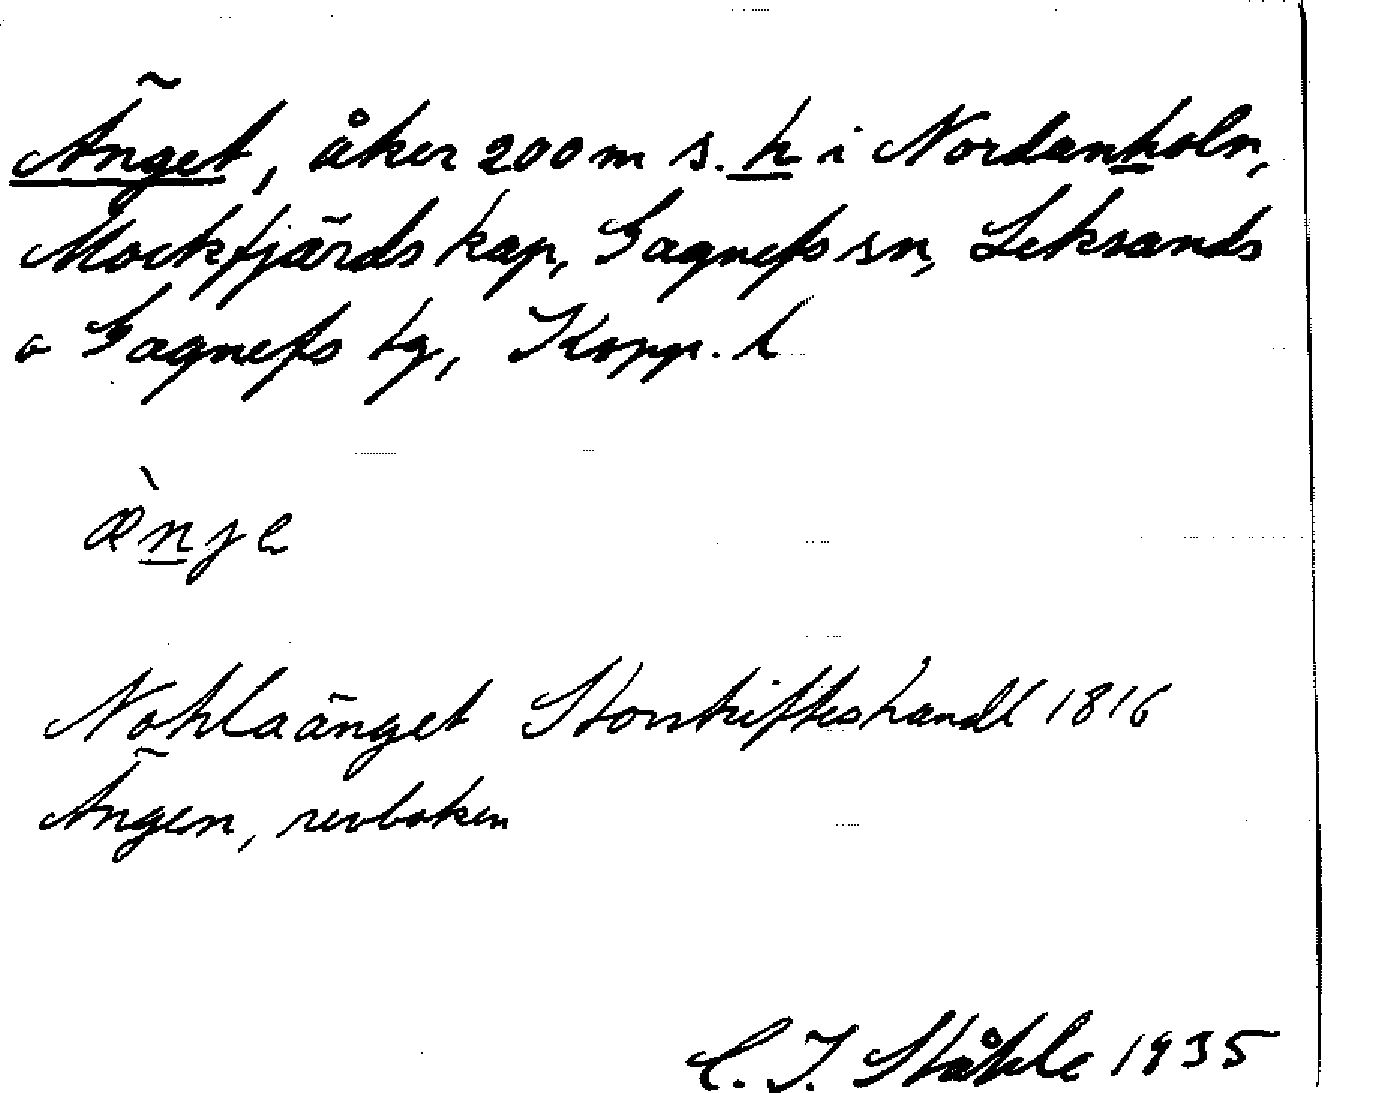 Änget, åker 200 m s. h i Nordanholn,
Mockfjärds kap, Gagnefs sn, Leksands
o Gagnefs tg, Kopp. l
æ̀nje
Nohlaänget Storskifteshandl 1816
Ängen, revboken
C. I. Ståhle 1935